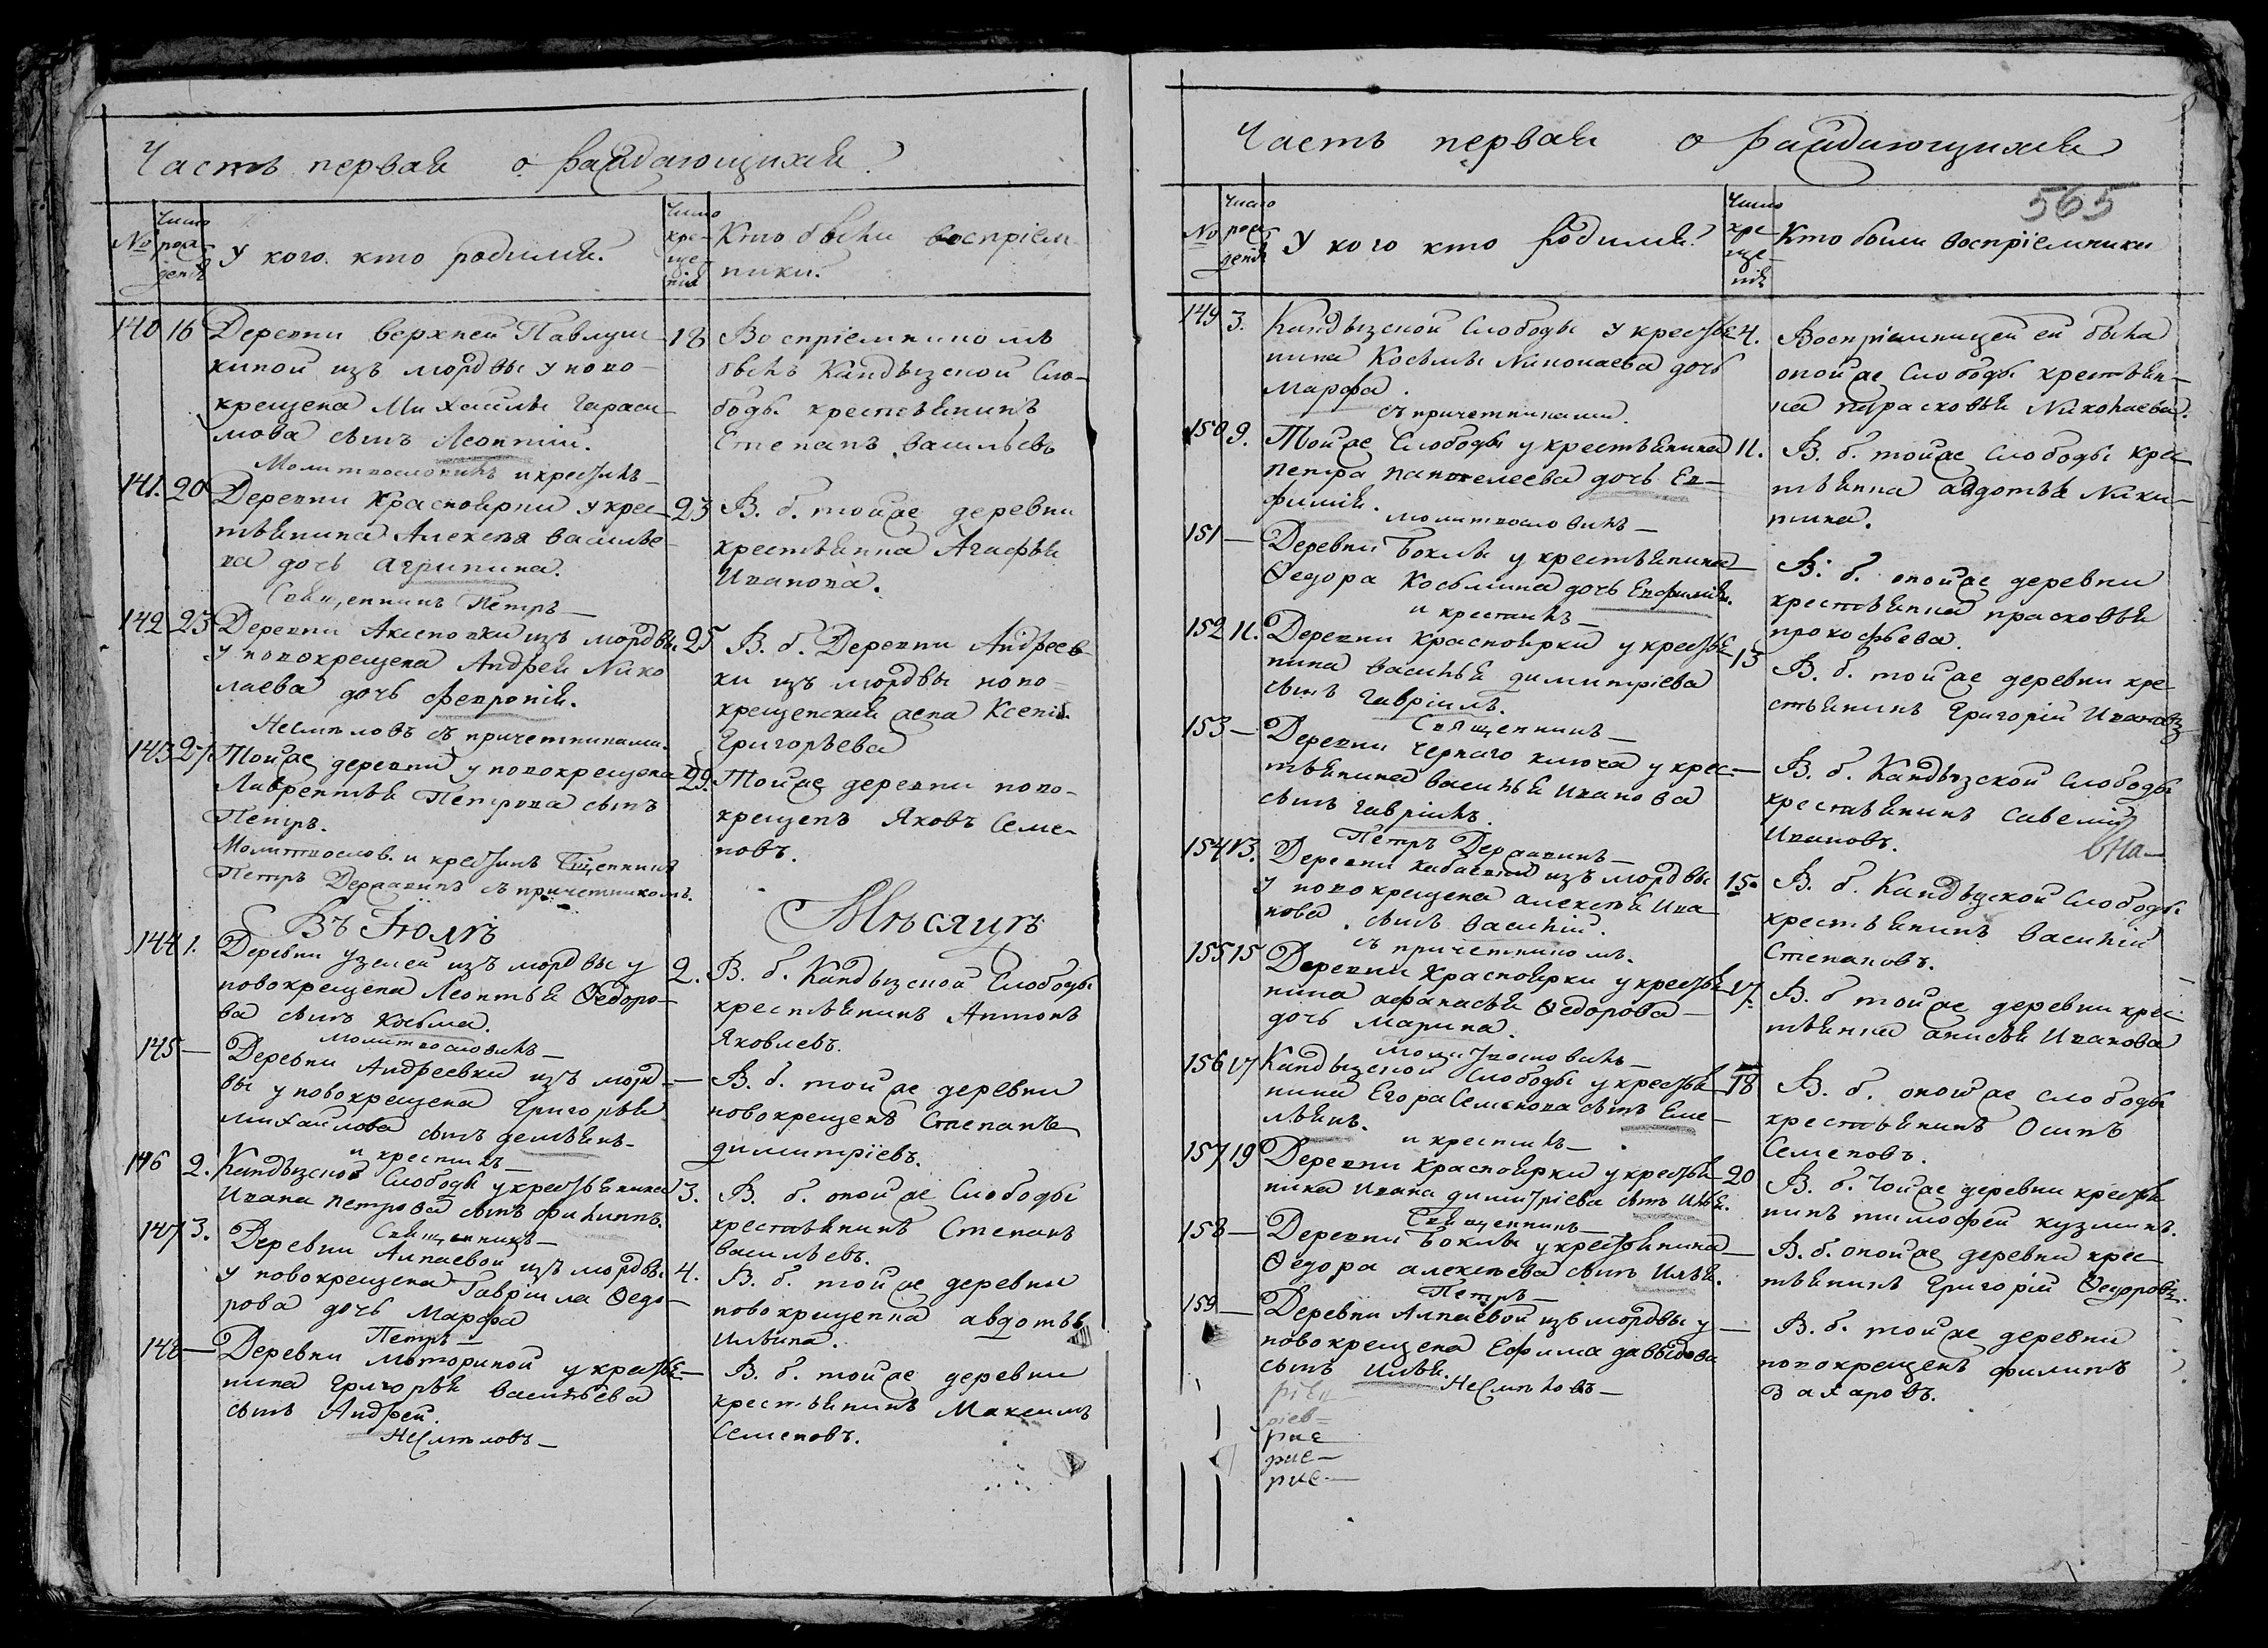 Часть первая о раждающихся
№
Число рожденія
У кого кто родился.
Число крещенія
Кто были воспріем-
ники.
140 16 Деревни верхней Павлуш-
киной изъ мордвы у ново-
крещена Михаилы Гараси-
мова сынъ Леонтій.
Молитвословилъ и крестилъ—
18 Воспріемникомъ
былъ Кандызской Сло-
боды крестьянинъ
Степанъ Васильевъ
141. 20 Деревни Красноярки у крес-
тьянина Алексея Василье-
ва дочь Агрипина.
Священникъ Петръ—
23 В. б. тойже деревни
крестьянка Агафья
Иванова.
142 23 Деревни Аксеновки изъ мордвы
у новокрещена Андрея Нико
лаева дочь Февронія.
Несмеловъ съ причетниками.
25 В. б. Деревни Андреев-
ки изъ мордвы ново-
крещенская жена Ксенія
Григорьева
143 27. Тойже деревни у новокрещена
Лаврентья Петрова сынъ
Петръ.
Молитвослов. и крестилъ Священникъ
Петръ Державинъ съ причетникомъ.
29. Тойже деревни ново-
крещенъ Яковъ Семе-
новъ.
Въ Іюлѣ Мѣсяцѣ
144 1. Деревни Узелей изъ мордвы у
новокрещена Леонтья Ѳедоро-
ва сынъ Косьма.
Молитвословилъ—
2. В. б. Кандызской Слободы
крестьянинъ Антонъ
Яковлевъ.
145 — Деревни Андреевки изъ морд-
вы у новокрещена Григорья
Михаилова сынъ демьянъ-
и крестилъ—
— В. б. тойже деревни
новокрещенъ Степанъ
димитріевъ.
146 2. Кандызской Слободы у крестьянина
Ивана Петрова сынъ филиппъ.
Священникъ—
3. В. б. онойже Слободы
крестьянинъ Степанъ
Васильевъ.
147 3. Деревни Алпаевой изъ мордвы
у новокрещена Гавріила Ѳедо-
рова дочь Марфа
Петръ—
4. В. б. тойже деревни
новокрещенка авдотья
Ильина.
148 — Деревни Моториной у крестья-
нина Григорья Васильева
сынъ Андрей.
Несмеловъ—
— В. б. тойже деревни
крестьянинъ Максимъ
Семеновъ.
Часть первая о раждающихся
565
№
Число рожденія
У кого кто родился.
Число крещенія
Кто были воспріемники
149 3. Кандызской Слободы у крестья-
нина Косьмы Николаева дочь
Марфа.
съ причетниками.
4. Воспріемницей ея была
онойже Слободы крестьян-
ка парасковья Николаева.
150 9. Тойже Слободы у крестьянина
петра пантелеева дочь Ев-
фимія.
молитвословилъ—
11. В. б. тойже Слободы крес-
тьянка авдотья Ники-
тина.
151 — Деревни Боклы у крестьянина
Ѳедора Косьмина дочь Евфимія.
и крестилъ—
В. б. онойже деревни
крестьянка прасковья
прокофьева.
152 11. Деревни Красноярки у крестья-
нина Василья димитріева
сынъ гавріилъ.
Священникъ—
13 В. б. тойже деревни кре-
стьянинъ Григорій Ивановъ
153 — Деревни Чернаго ключа у крес-
тьянина Василья Иванова
сынъ гавріилъ.
Петръ Державинъ—
— В. б. Кандызской слободы
крестьянинъ Савелий
Ивановъ.
154 13. Деревни изъ мордвы
у новокрещена алексея Ива
нова сынъ Василій.
съ причетникомъ.
15. В. б. Кандызской Слободы
крестьянинъ Василій
Степановъ.
155 15 Деревни Красноярки у крестья
нина афанасья Ѳедорова—
дочь Марина.
молитвословилъ—
17. В. б тойже деревни крес-
тьянка анисья Иванова
156 17 Кандызской Слободы у крестья
нина Егора Семенова сынъ Еме-
льянъ.
и крестилъ—
18 В. б. онойже слободы
крестьянинъ Осипъ
Семеновъ.
157 19 Деревни Красноярки у крестья
нина Ивана димитріева сынъ Илья.
Священникъ—
20 В. б. тойже деревни крестья
нинъ тимофей кузминъ.
158 — Деревни Боклы у крестьянина
Ѳедора алексеева сынъ Илья.
Петръ—
— В. б. онойже деревни крес-
тьянинъ Григорій Ѳедоровъ.
159 — Деревни Алпаевой изъ мордвы у
новокрещена Ефима давыдова
сынъ Илья.
Несмеловъ—
— В. б. тойже деревни
новокрещенъ филипъ
Захаровъ.
ріев=
рие
рие—
рие—